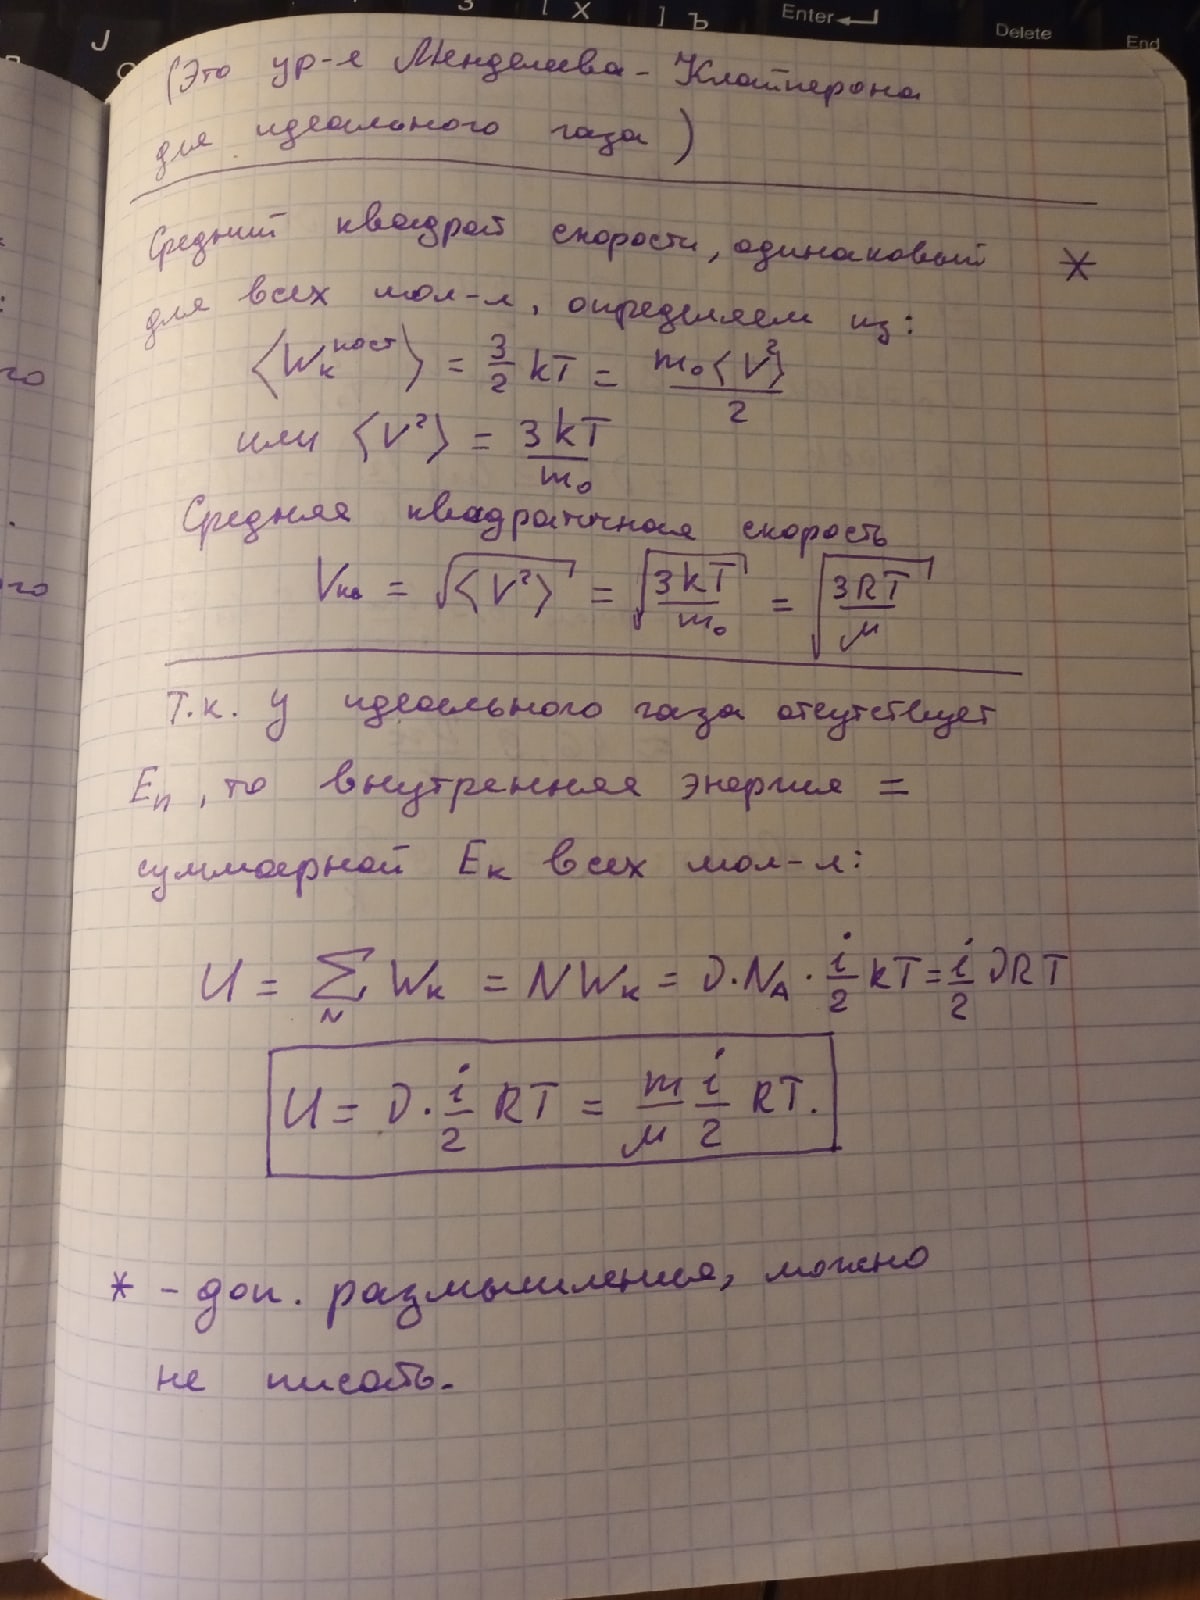 J
З
[ Х
] Ъ
Enter
Delete
End
(Это ур-е Менделеева - Клайперона
для идеального газа)
Средний квадрат скорости, одинаковый *
для всех мол-л, определяем из:
⟨Wк^пост⟩ = 3/2 kT = m₀⟨V²⟩/2
или ⟨V²⟩ = 3kT/m₀
Средняя квадратичная скорость
Vкв = √⟨V²⟩ = √(3kT/m₀) = √(3RT/μ)
Т.к. у идеального газа отсутствует
Eп, то внутренняя энергия =
суммарной Eк всех мол-л:
U = ∑_N Wк = NWк = ν·N_A · i/2 kT = i/2 νRT
U = ν · i/2 RT = m/μ i/2 RT.
* - доп. размышления, можно
не писать.
го
го